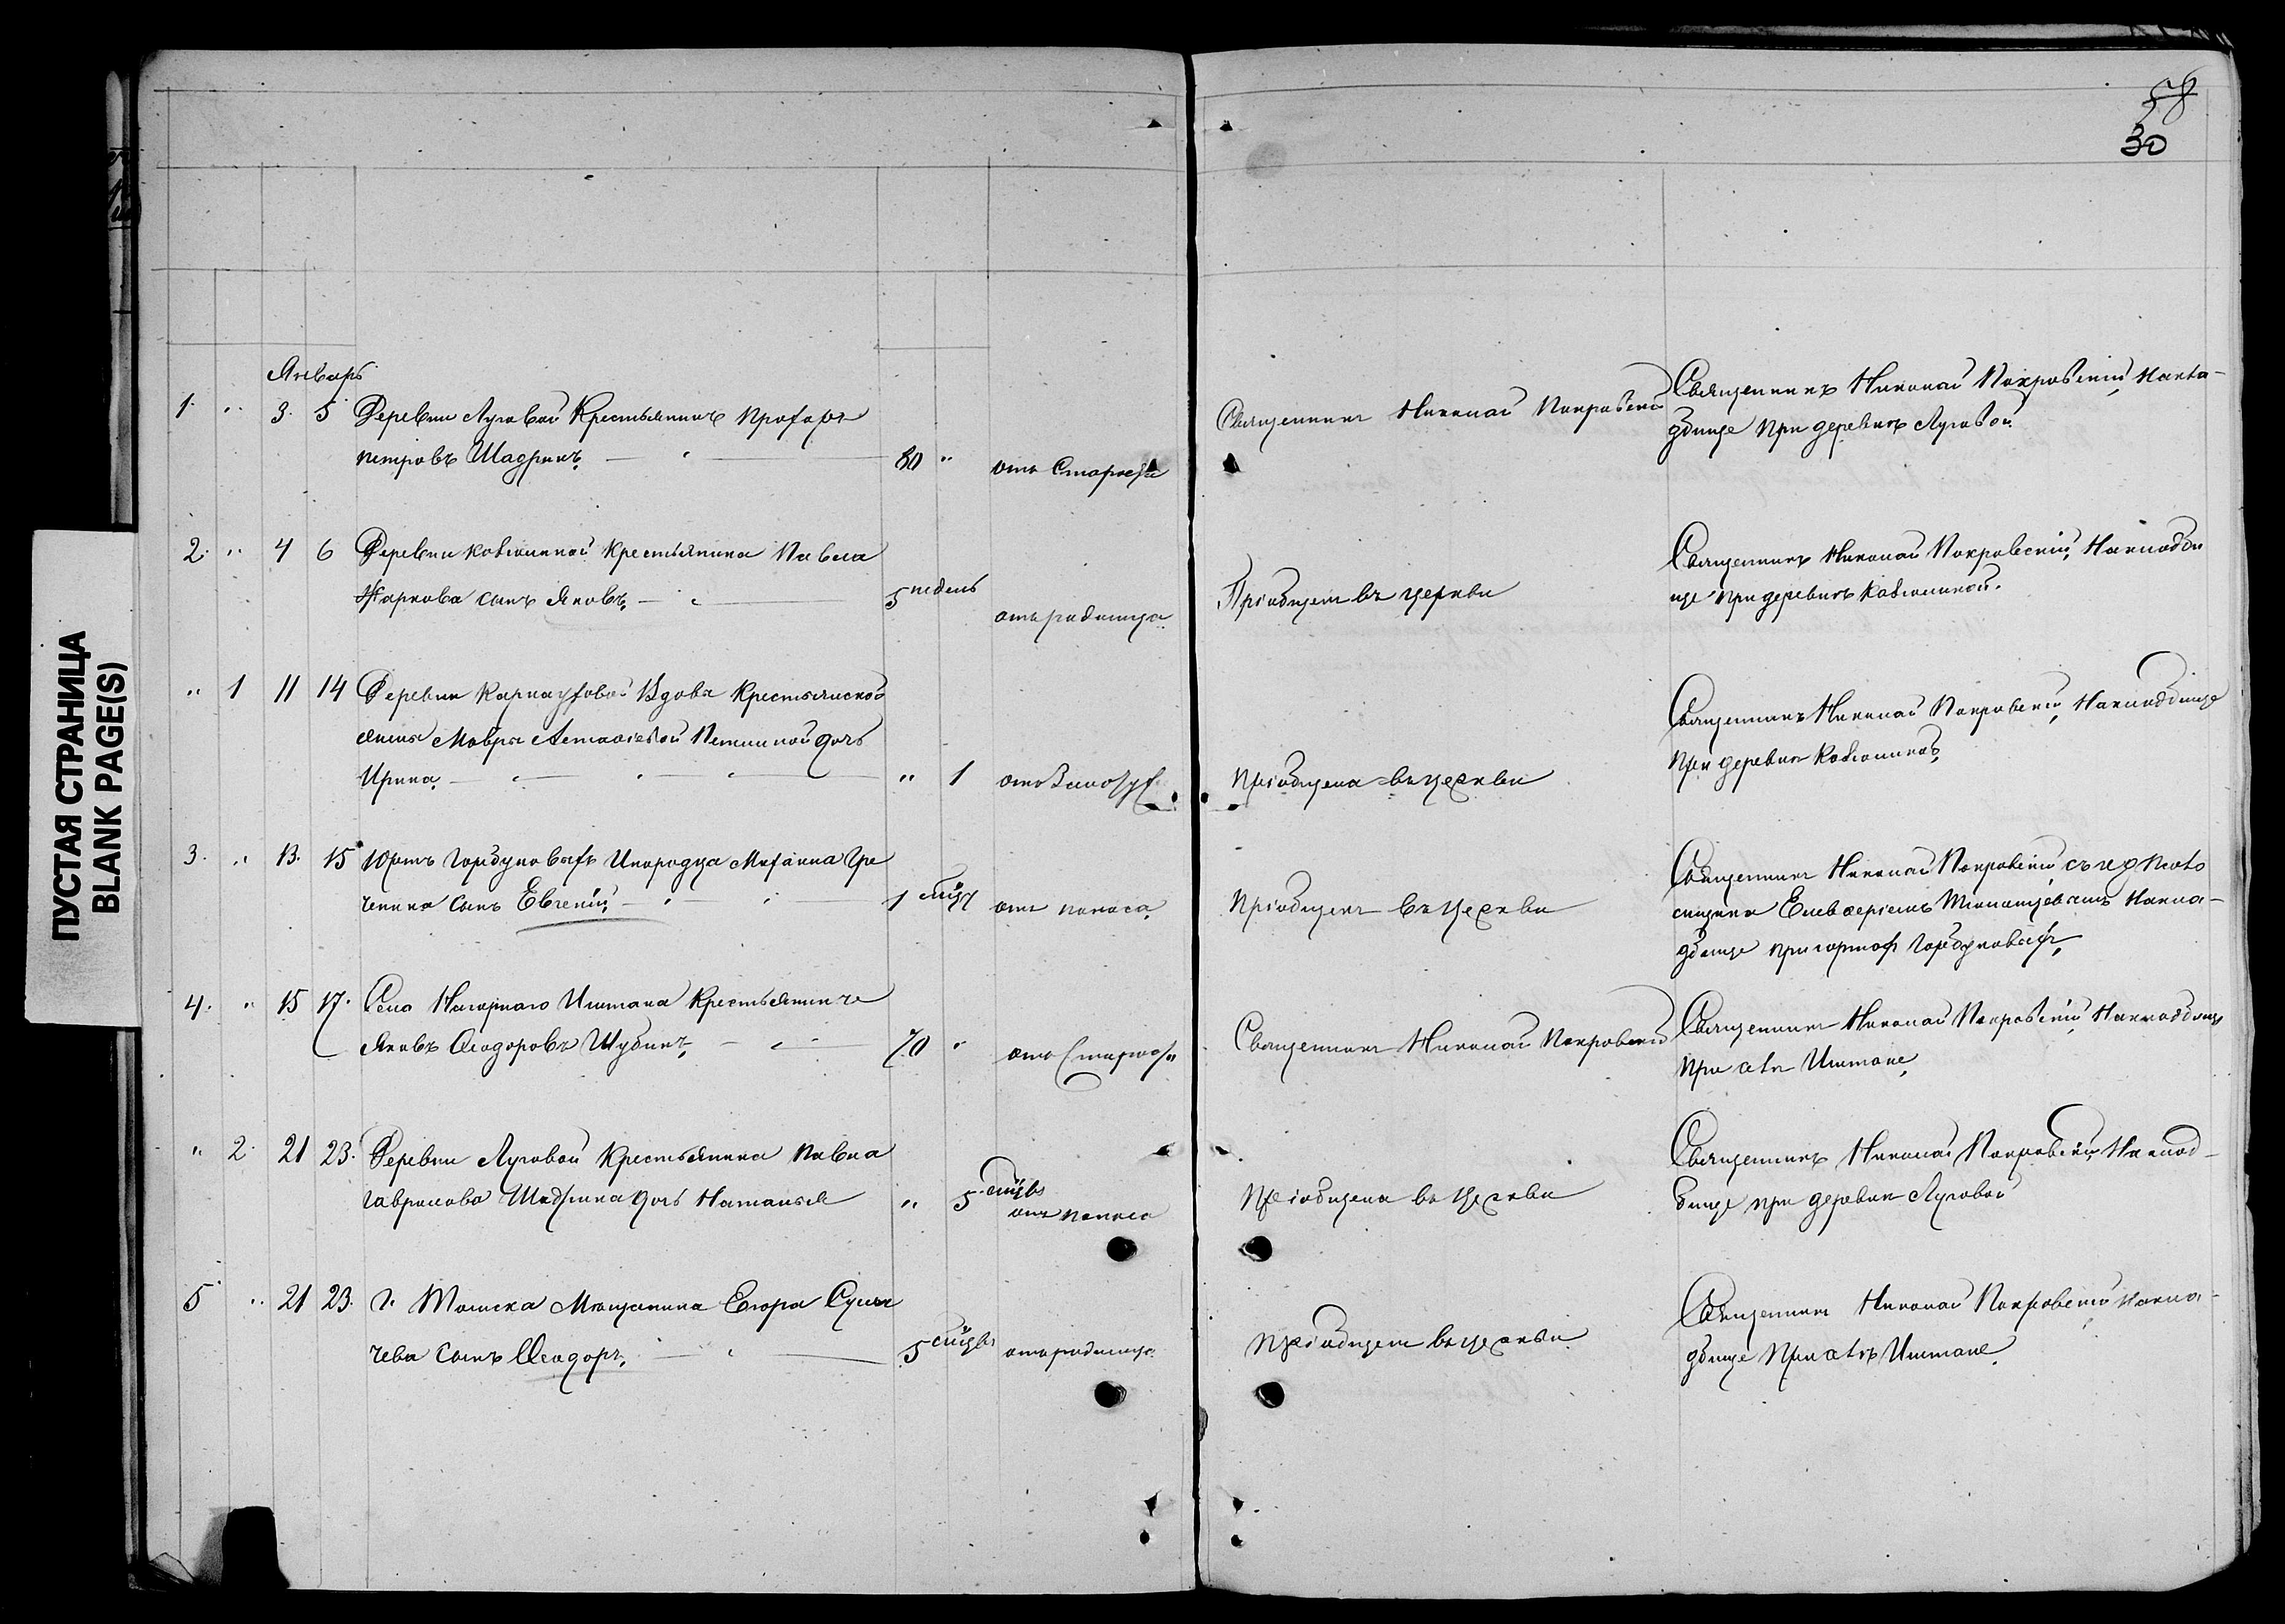 58
30
ПУСТАЯ СТРАНИЦА
BLANK PAGE(S)
Январь
1. " 3. 5 Деревни Луговой Крестьянинъ Прохоръ
Петровъ Шадринъ, 80 " отъ Старости
Священникъ Николай Покровский
Священникъ Николай Покровский, на кла-
дбище при деревнѣ Луговой.
2. " 4 6 Деревни Крестьянина Павла
Жаркова сынъ Яковъ, 5 недель
отъ родимца.
Пріобщенъ въ церкви
Священникъ Николай Покровский, На кладби
ще при деревнѣ
" 1 11 14 Деревни Карнауховой Вдовы Крестьянской
жены Мавры дочь
Ирина, " 1
Пріобщена въ церкви
Священникъ Николай Покровский, На кладбище
при деревнѣ
3. " 13. 15 Юртъ Горбуновыхъ Инородца Михаила
сынъ Евгений, 1 отъ поноса,
Пріобщенъ въ церкви
Священникъ Николай Покровский съ
На кла-
дбище при юртахъ Горбуновыхъ,
4. " 15 17. Села Нагорнаго Иштана Крестьянинъ
Яковъ Ѳеодоровъ Шубинъ, 70 " отъ Старости
Священникъ Николай Покровский
Священникъ Николай Покровский На кладбище
при селѣ Иштане,
" 2. 21 23. Деревни Луговой Крестьянина Павла
Гаврилова Шадрина дочь Наталья " 5
отъ поноса
Пріобщена въ церкви
Священникъ Николай Покровский, На клад-
бище при деревнѣ Луговой
5 " 21 23. г. Томска Мѣщанина Егора
сынъ Ѳеодоръ, 5 отъ родимца.
Пріобщенъ въ церкви.
Священникъ Николай Покровский на кла-
дбище при селѣ Иштане,